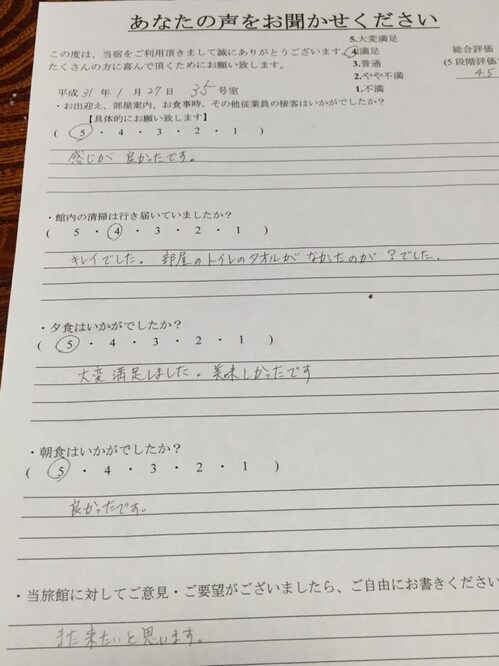 あなたの声をお聞かせください
この度は、当宿をご利用頂きまして誠にありがとうございます。
たくさんの方に喜んで頂くためにお願い致します。
5.大変満足
4.満足
3.普通
2.やや不満
1.不満
総合評価
(5段階評価
4.5
平成 31 年 1 月 27 日 35 号室
・お出迎え、部屋案内、お食事時、その他従業員の接客はいかがでしたか?
【具体的にお願い致します】
( 5 ・ 4 ・ 3 ・ 2 ・ 1 )
感じが良かったです。
・館内の清掃は行き届いていましたか?
( 5 ・ 4 ・ 3 ・ 2 ・ 1 )
キレイでした。部屋のトイレのタオルがなかったのが?でした。
・夕食はいかがでしたか?
( 5 ・ 4 ・ 3 ・ 2 ・ 1 )
大変満足しました。美味しかったです
・朝食はいかがでしたか?
( 5 ・ 4 ・ 3 ・ 2 ・ 1 )
良かったです。
・当旅館に対してご意見・ご要望がございましたら、ご自由にお書きください
また来たいと思います。